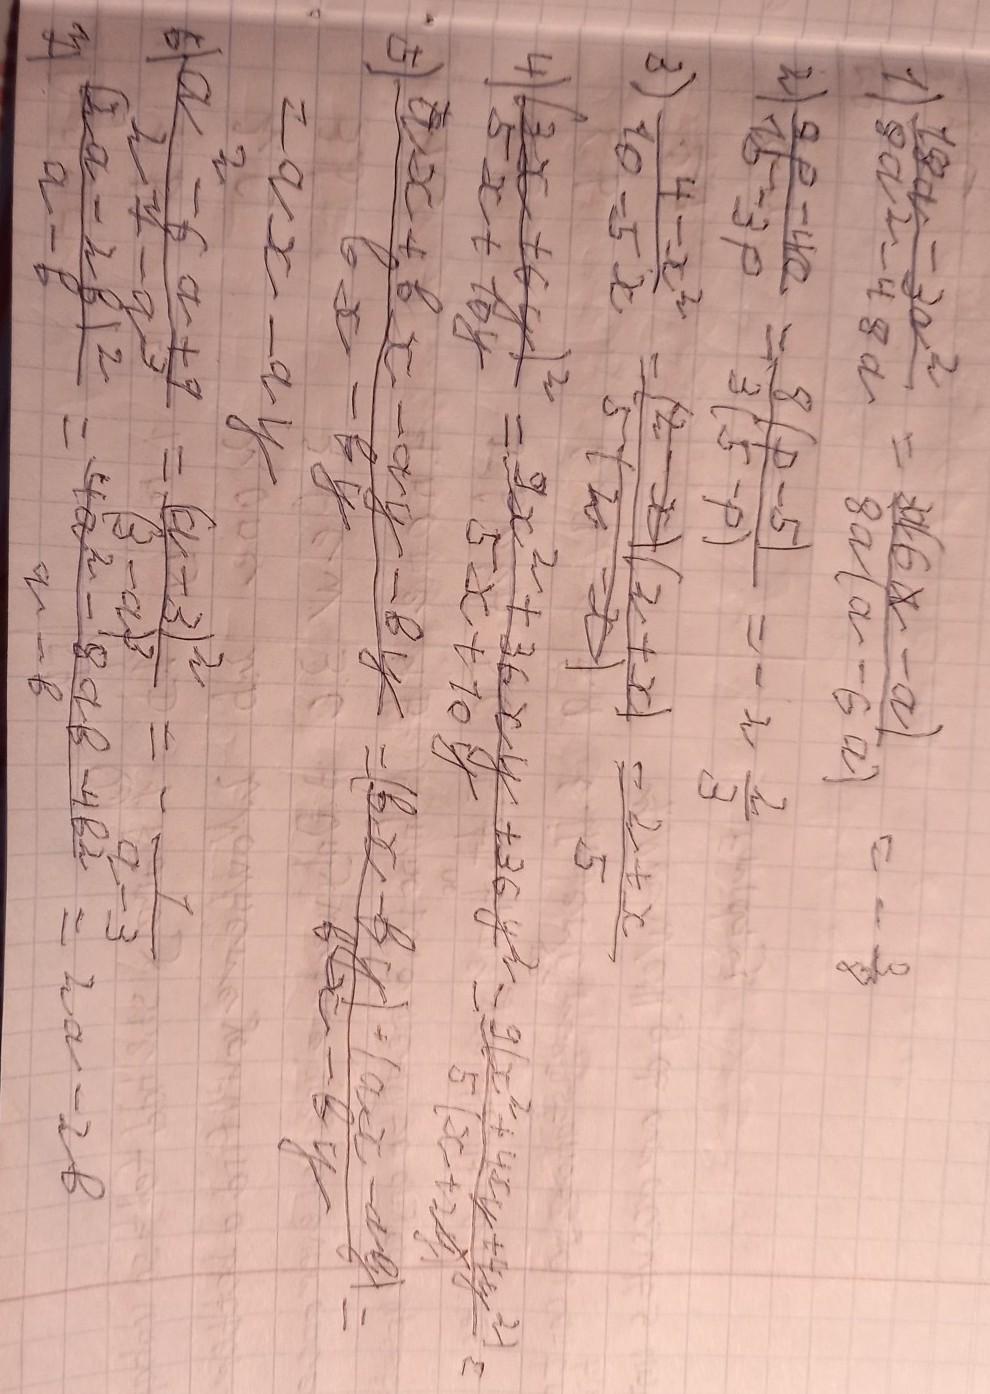 1) (18a - 3a²)/(8a² - 48a) = 3(6 - a)/8a(a - 6a) = - 3/8
2) (8p - 40)/(15 - 3p) = 8(p - 5)/3(5 - p) = - 2 2/3
3) (4 - x²)/(10 - 5x) = (2 - x)(2 + x)/5(2 - x) = (2 + x)/5
4) (3x + 6y)²/(5x + 10y) = (9x² + 36xy + 36y²)/(5x + 10y) = 9(x² + 4xy + 4y²)/5(x + 2y) =
5) (ax + bx - ay - by)/(bx - by) = (bx - by) + (ax - ay)/(bx - by) =
= ax - ay
6) (a² - 6a + 9)/(27 - a³) = (a - 3)²/(3 - a)³ = - 1/(a - 3)
7) (2a - 2b)²/(a - b) = (4a² - 8ab + 4b²)/(a - b) = 2a - 2b